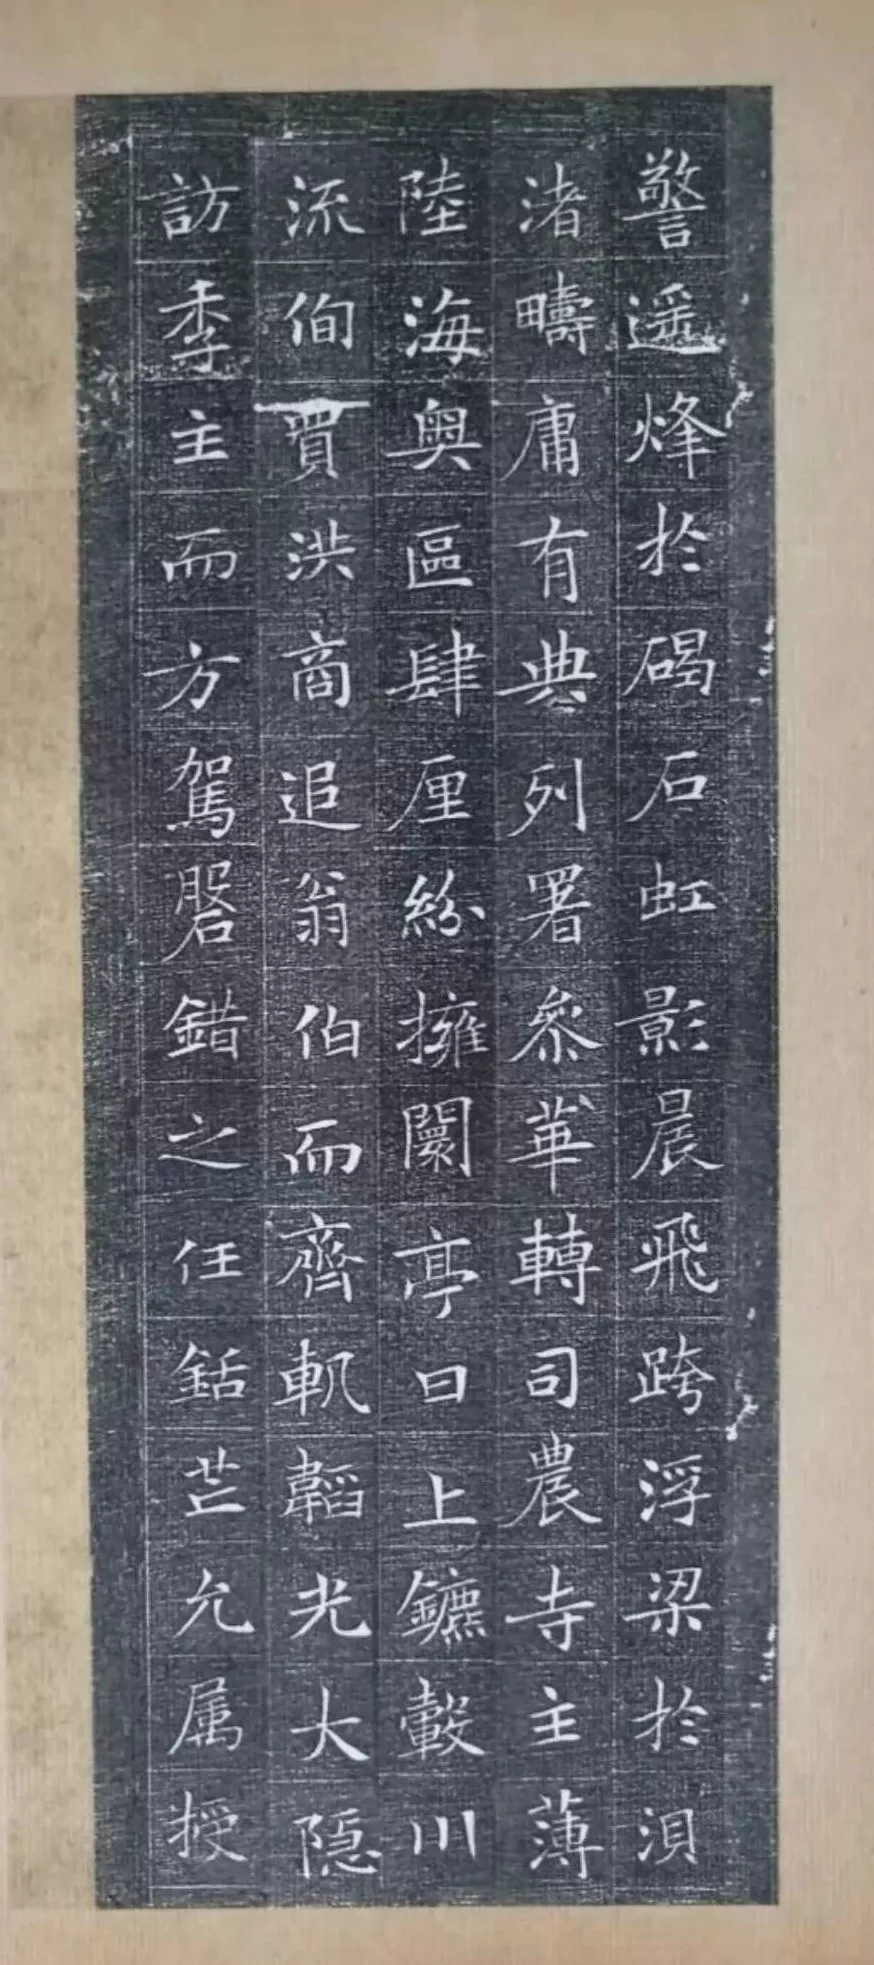 警遥烽於碣石虹影晨飛跨浮梁於浿
渚疇庸有典列署叅華轉司農寺主薄
陸海奥區肆厘紛擁闤亭日上鑣轂川
流佝買洪商追翁伯而齊軏韜光大隐
訪季主而方駕磐錯之任銛芒允属授